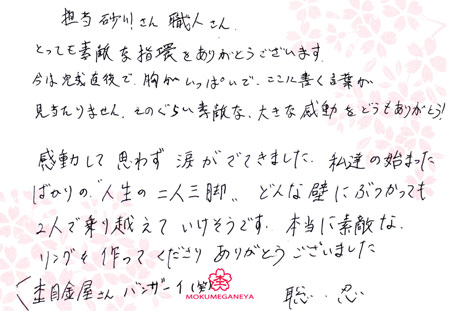 担当 砂川さん 職人さん
とっても素敵な指環をありがとうございます。
今は完成直後で、胸がいっぱいで、ここに書く言葉が
見当たりません。そのぐらい素敵な、大きな感動をどうもありがとう!
感動して思わず涙がでてきました。私達の始まった
ばかりの“人生の二人三脚„どんな壁にぶつかっても
2人で乗り越えていけそうです。本当に素敵な
リングを作ってくださりありがとうございました
杢目金屋さんバンザーイ(笑)
MOKUMEGANEYA
聡・忍